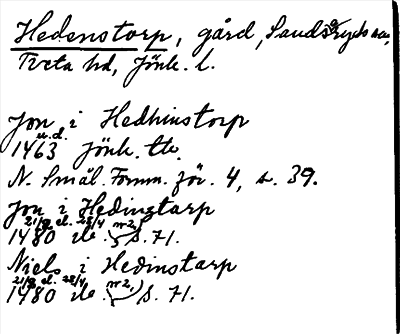 Hedenstorp, gård, Sandseryds sn,
Tveta hd, Jönk. l.
Jon i Hedhinstorp
u.d.
1463 Jönk. tb.
N. Smål. Fornm.för. 4, s. 39.
Jon i Hedingtarp
21/9 el. 28/4 nr 2,
1480 do. s. 71.
Niels i Hedinstarp
21/9 el. 28/4 nr 2,
1480 do. s. 71.